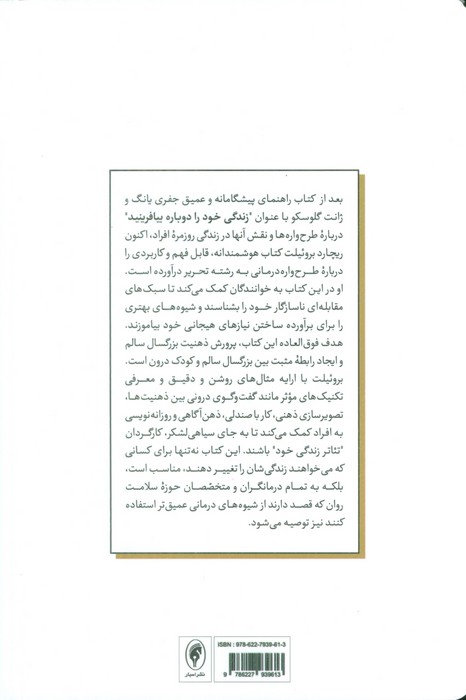 بعد از کتاب راهنمای پیشگامانه و عمیق جفری یانگ و
ژانت گلوسکو با عنوان "زندگی خود را دوباره بیافرینید"
دربارهٔ طرح‌واره‌ها و نقش آنها در زندگی روزمرهٔ افراد، اکنون
ریچارد بروئیلت کتاب هوشمندانه، قابل فهم و کاربردی را
دربارهٔ طرح‌واره‌درمانی به رشته تحریر درآورده است.
او در این کتاب به خوانندگان کمک می‌کند تا سبک‌های
مقابله‌ای ناسازگار خود را بشناسند و شیوه‌های بهتری
را برای برآورده ساختن نیازهای هیجانی خود بیاموزند.
هدف فوق‌العاده این کتاب، پرورش ذهنیت بزرگسال سالم
و ایجاد رابطهٔ مثبت بین بزرگسال سالم و کودک درون است.
بروئیلت با ارایه مثال‌های روشن و دقیق و معرفی
تکنیک‌های مؤثر مانند گفت‌وگوی درونی بین ذهنیت‌ها،
تصویرسازی ذهنی، کار با صندلی، ذهن‌آگاهی و روزانه‌نویسی
به افراد کمک می‌کند تا به جای سیاهی‌لشکر، کارگردان
"تئاتر زندگی خود" باشند. این کتاب نه‌تنها برای کسانی
که می‌خواهند زندگی‌شان را تغییر دهند، مناسب است،
بلکه به تمام درمانگران و متخصّصان حوزه سلامت
روان که قصد دارند از شیوه‌های درمانی عمیق‌تر استفاده
کنند نیز توصیه می‌شود.
ISBN : 978-622-7939-61-3
9 786227 939613
نشر اسبار